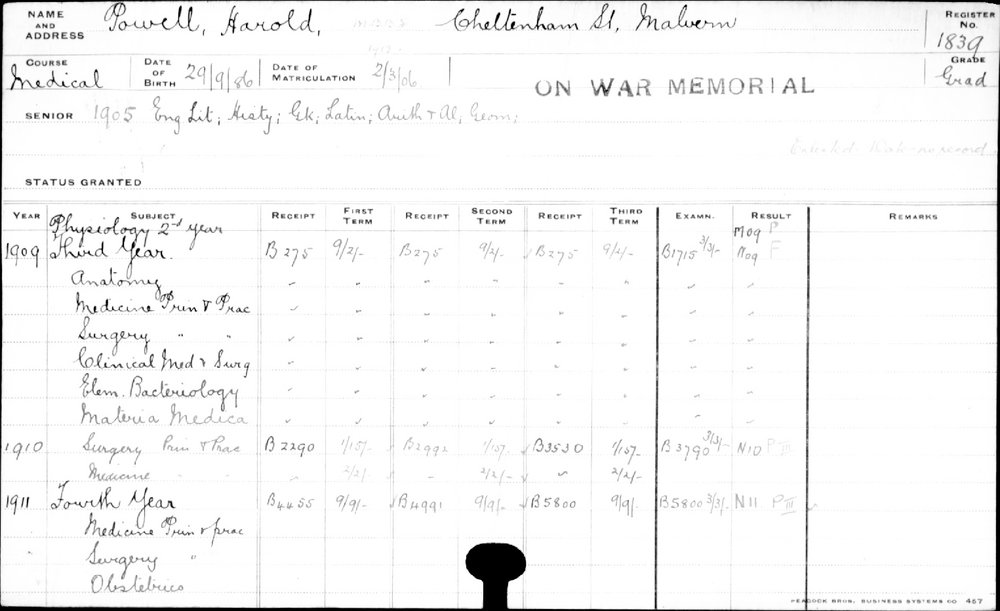 NAME AND ADDRESS Powell, Harold, Cheltenham St, Malvern REGISTER NO. 1839
COURSE Medical DATE OF BIRTH 29/9/86 DATE OF MATRICULATION 2/3/06 GRADE Grad
ON WAR MEMORIAL
SENIOR 1905 Eng Lit; Histy; Gk; Latin; Arith & Al; Geom;
STATUS GRANTED
YEAR SUBJECT RECEIPT FIRST TERM RECEIPT SECOND TERM RECEIPT THIRD TERM EXAMN. RESULT REMARKS
Physiology 2nd year M09 P
1909 Third Year. B275 9/2/- B275 9/2/- B275 9/2/- B1715 3/3/- N09 F
Anatomy " " " " " " "
Medicine Prin & Prac " " " " " " "
Surgery " " " " " " " " "
Clinical Med & Surg " " " " " " "
Elem. Bacteriology " " " " " " "
Materia Medica " " " " " " "
1910 Surgery Prin & Prac B2290 1/15/- B2992 1/15/- B3530 1/15/- B3790 3/3/- N10 P III
Medicine " " 2/2/- " 2/2/- " 2/2/-
1911 Fourth Year B4455 9/9/- B4991 9/9/- B5800 9/9/- B5800 3/3/- N11 P III
Medicine Prin & prac
Surgery "
Obstetrics
PEACOCK BROS. BUSINESS SYSTEMS CO 467